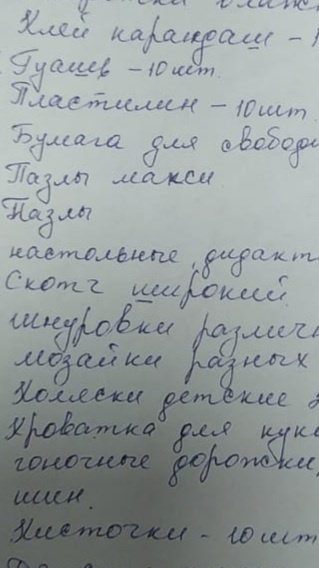 Клей карандаш -
Гуашь - 10 шт.
Пластилин - 10 шт
Бумага для
Пазлы макси
Пазлы
настольные,
Скотч широкий
шнуровки
мозайки разных
Коляски детские
Кроватка для
гоночные дорожки,
шин.
Кисточки - 10 шт